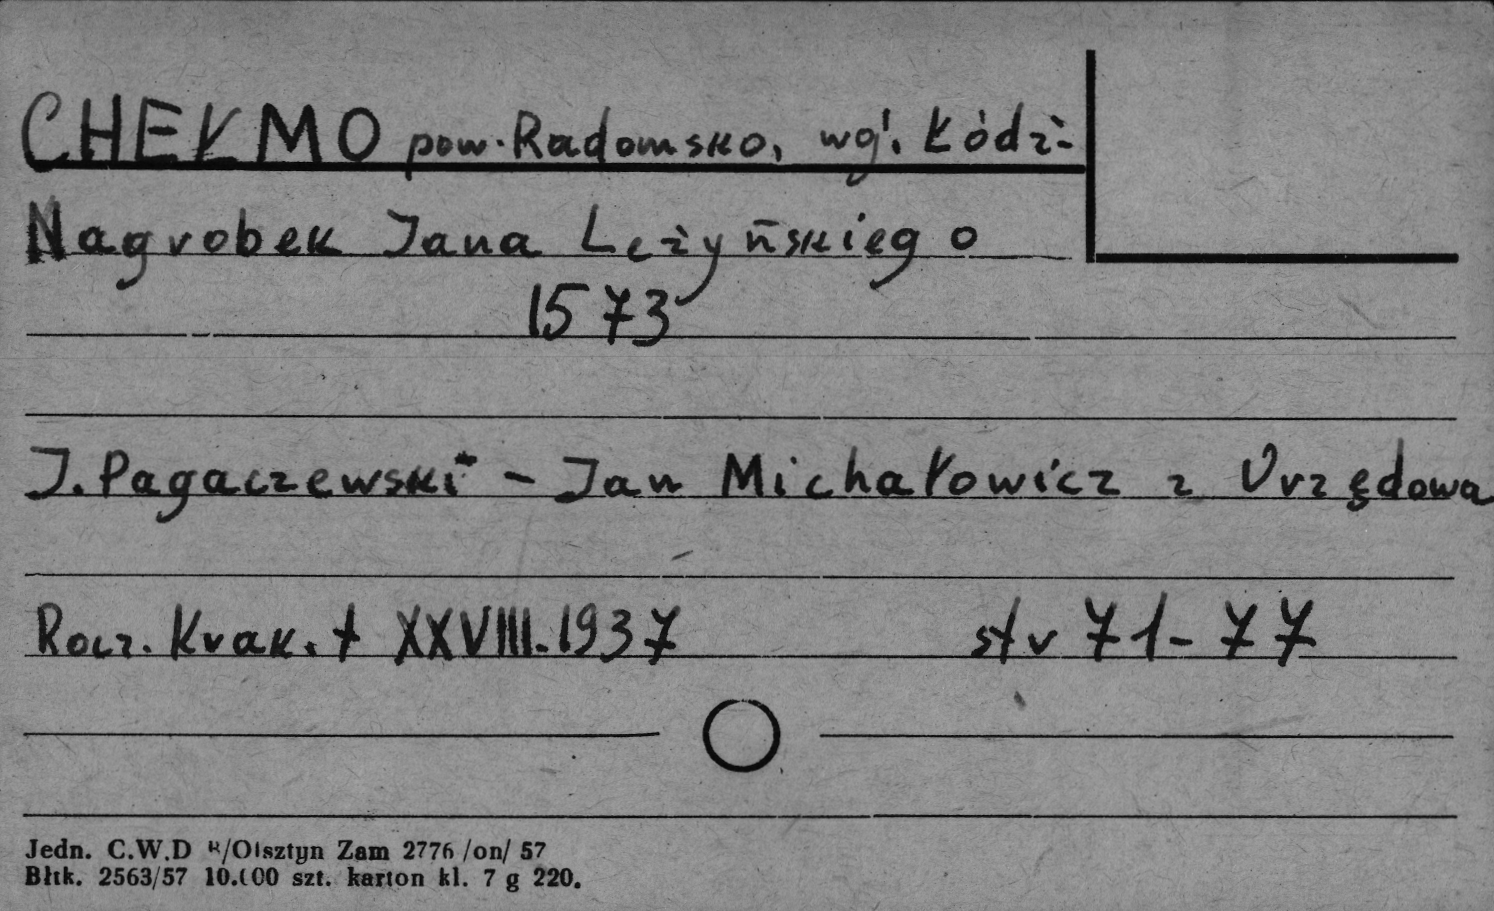 CHEŁMO pow. Radomsko, wg. Łódź
Nagrobek Jana Leżyńskiego
1573
J. Pagaczewski - Jan Michałowicz z Urzędowa
Rocz. Krak. t XXVIII. 1937 str 71-77
Jedn. C.W.D R/Olsztyn Zam 2776 /on/ 57
Błtk. 2563/57 10.000 szt. karton kl. 7 g 220.